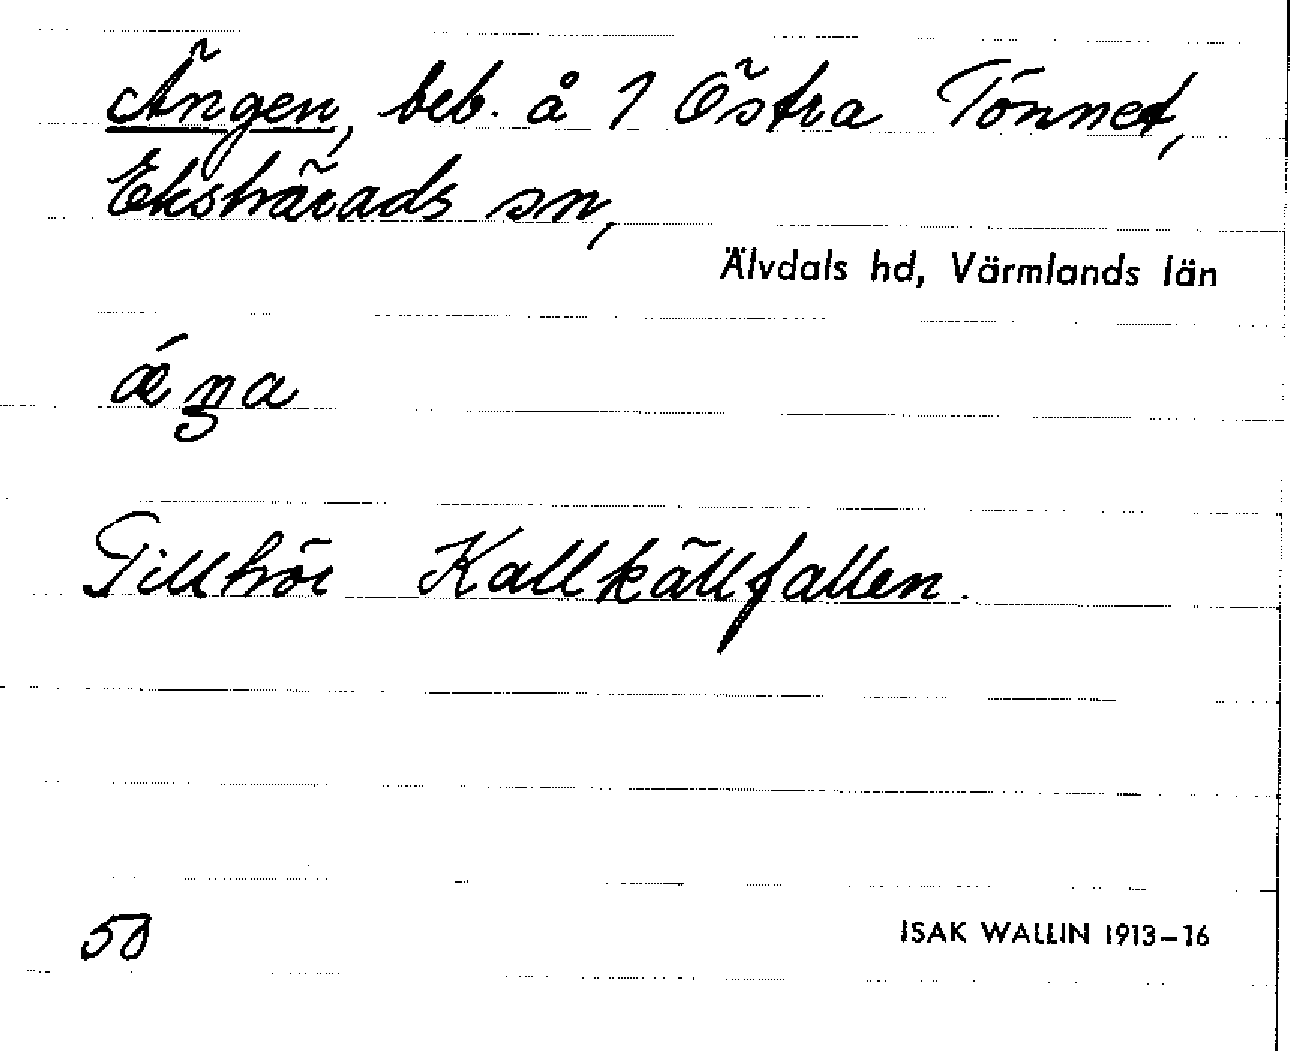 Ängen, beb. å 1 Östra Tönnet,
Ekshärads sn,
Älvdals hd, Värmlands län
ǽŋa
Tillhör Kallkällfallen.
50
ISAK WALLIN 1913-16